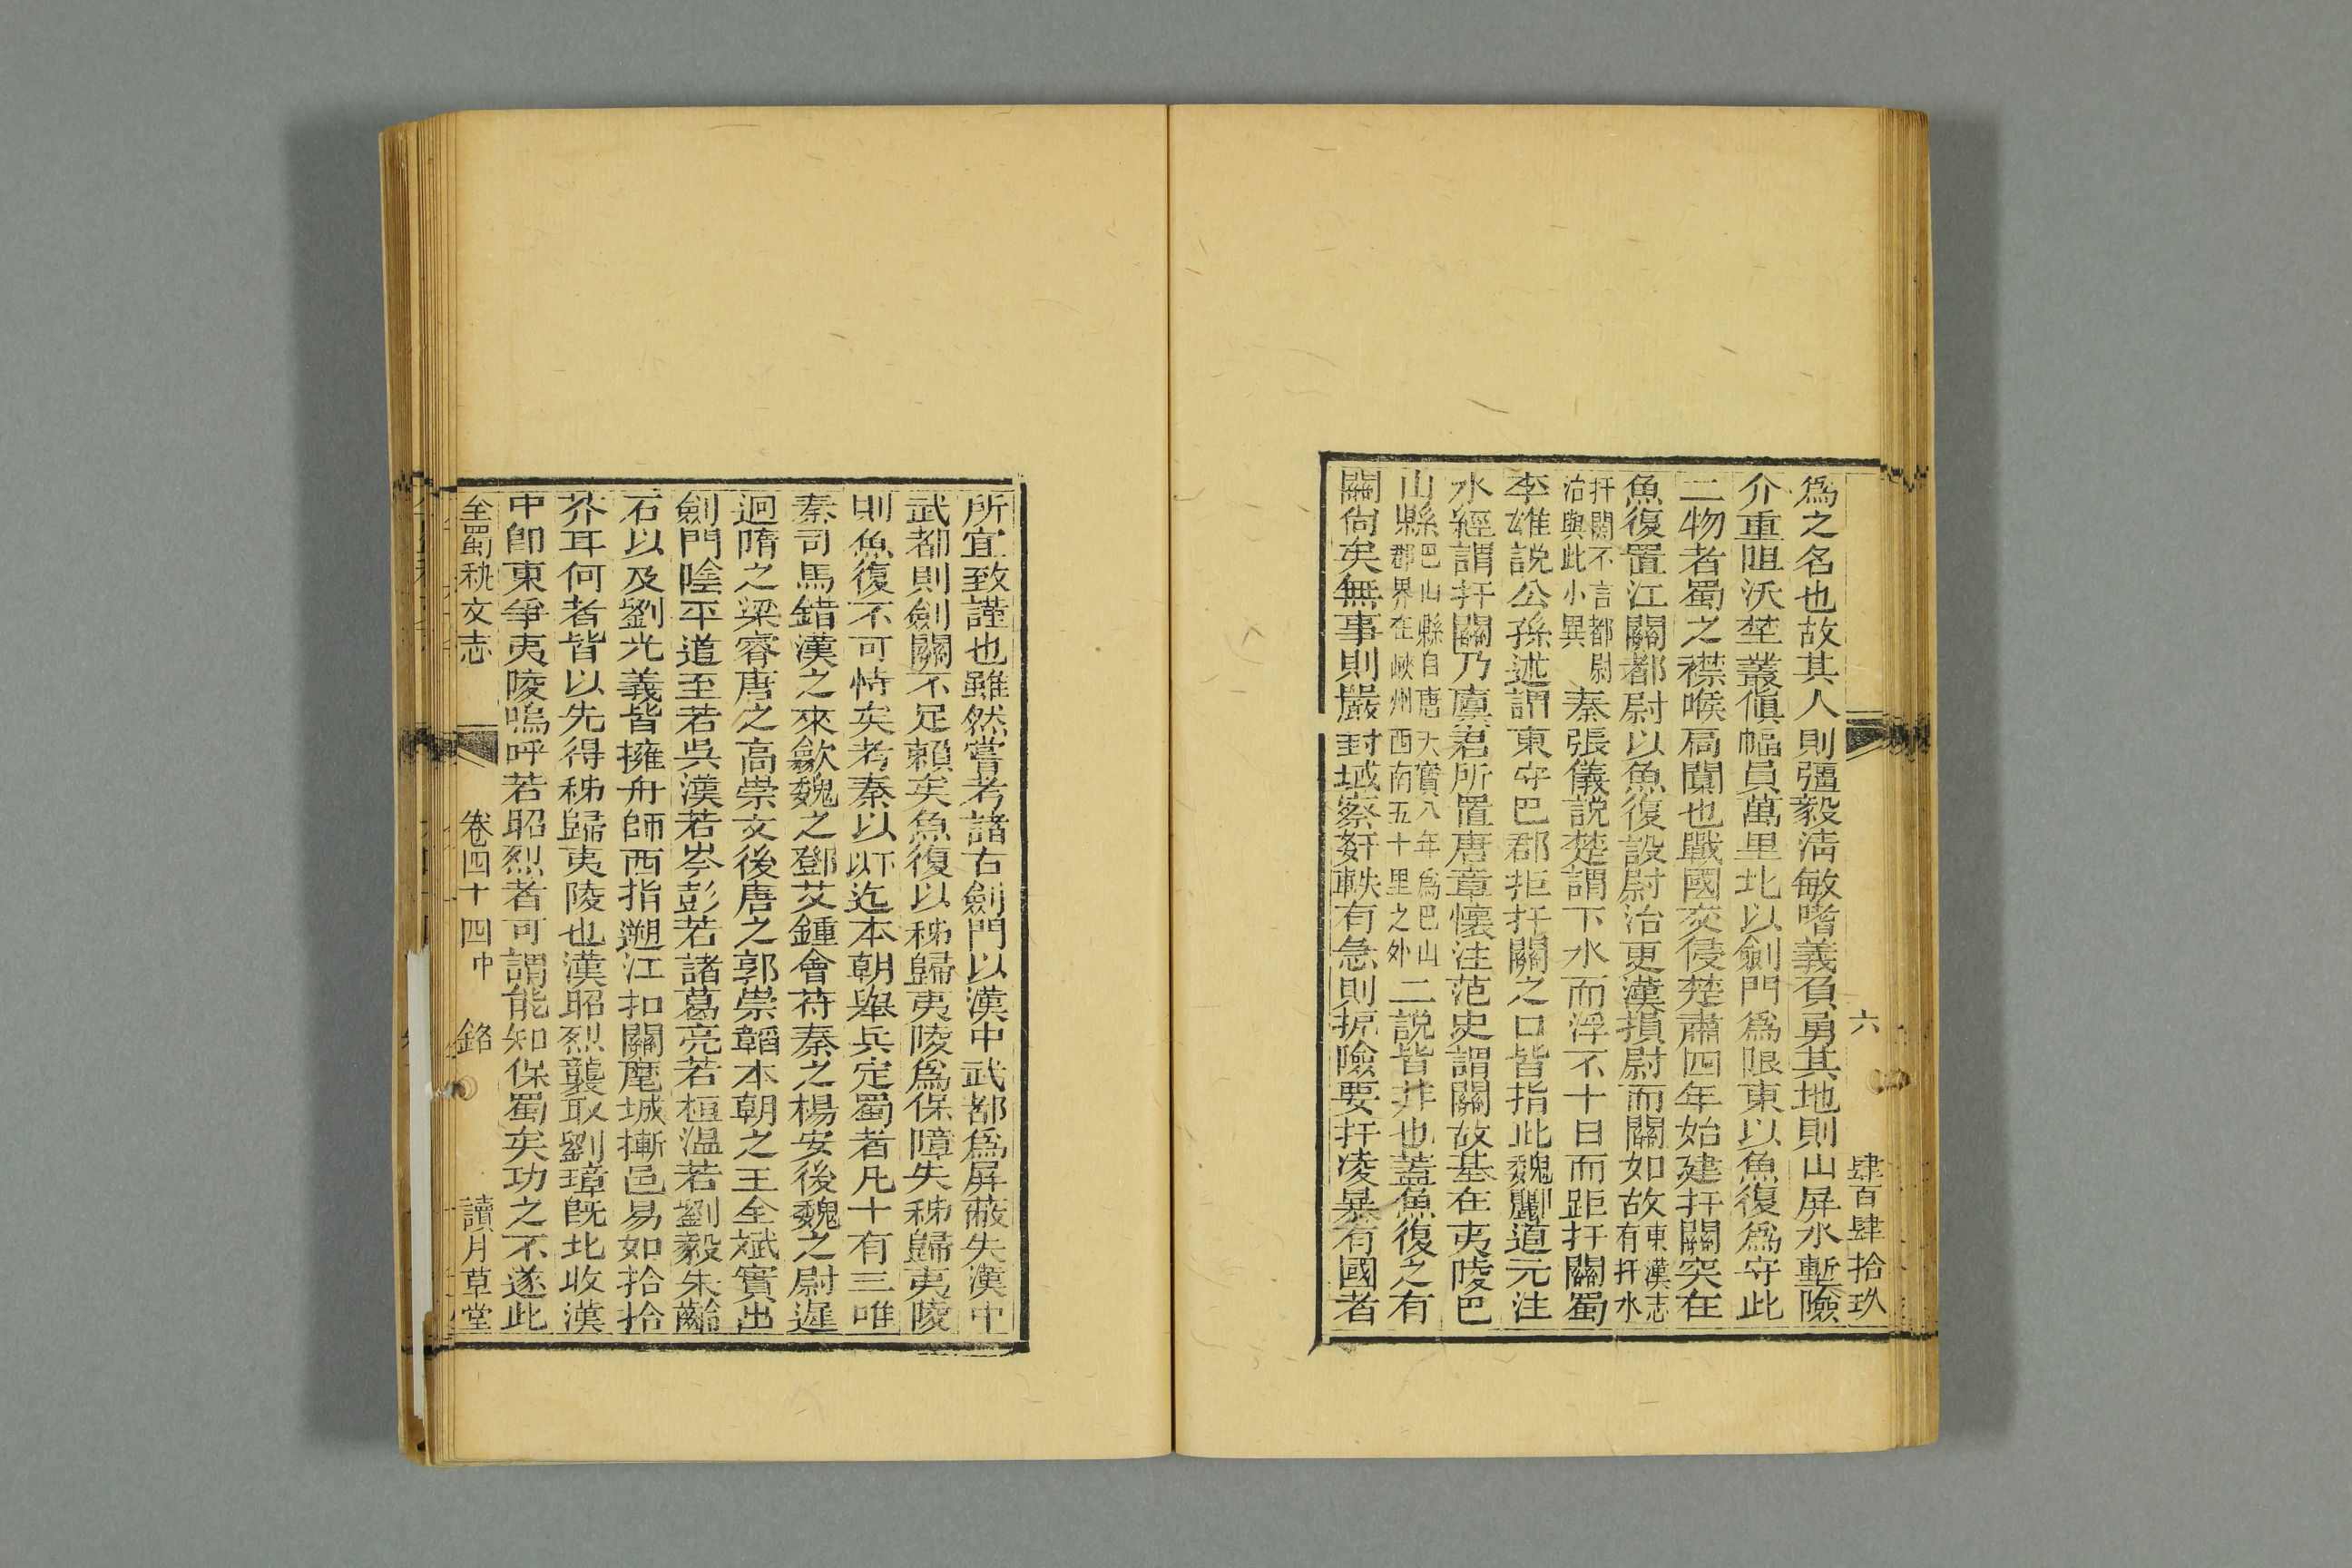 六 肆百肆拾玖
為之名也故其人則彊毅淸敏嗜義負勇其地則山屏水塹險
介重阻沃埜叢傎幅員萬里北以劍門爲限東以魚復爲守此
二物者蜀之襟喉扃闑也戰國交侵楚肅四年始建扞關突在
魚復置江關都尉以魚復設尉治更漢損尉而關如故東漢志有扞水
扞關不言都尉治與此小異秦張儀説楚謂下水而浮不十日而距扞關蜀
李雄說公孫述謂東守巴郡拒扞關之口皆指此魏酈道元注
水經謂扞關乃廩君所置唐章懷注范史謂關故基在夷陵巴
山縣巴山縣自唐天寶八年爲巴山郡界在峽州西南五十里之外二說皆非也蓋魚復之有
關尙矣無事則嚴封域察姧軼有急則扼險要扞凌暴有國者
所宜致謹也雖然嘗考諸右劍門以漢中武都爲屏蔽失漢中
武都則劍關不足賴矣魚復以秭歸夷陵爲保障失秭歸夷陵
則魚復不可恃矣考秦以以下迄本朝舉兵定蜀者凡十有三唯
秦司馬錯漢之來歙魏之鄧艾鍾會苻秦之楊安後魏之尉遲
迥隋之梁睿唐之高崇文後唐之郭崇韜本朝之王全斌實出
劍門陰平道至若吳漢若岑彭若諸葛亮若桓溫若劉毅朱齡
石以及劉光義皆擁舟師西指遡江扣關麾城摲邑易如拾拾
芥耳何者皆以先得秭歸夷陵也漢昭烈襲取劉璋旣北收漢
中卽東爭夷陵嗚呼若昭烈者可謂能知保蜀矣功之不遂此
全蜀秇文志 卷四十四中 銘 讀月草堂